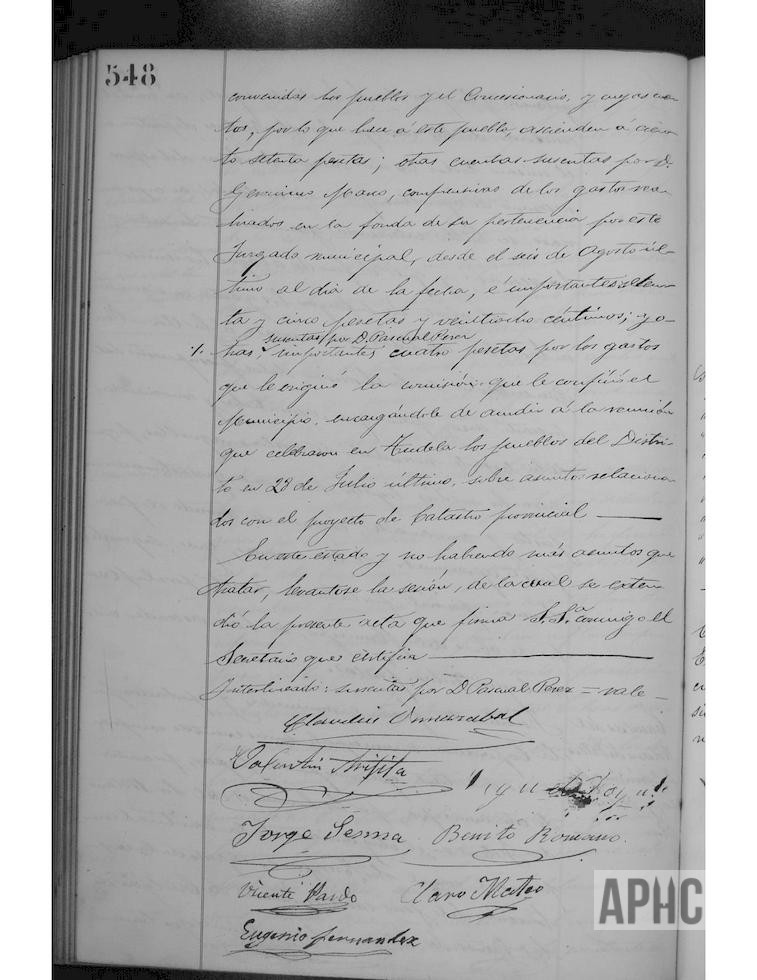 548
convenidas los pueblos y el Concesionario, y cuyos cuen
tos, por lo que hace á este pueblo, ascienden á cien
to setenta pesetas; otras cuentas suscritas por D.
Gervasio Maeso, comprensivas de los gastos rea
lizados en la fonda de su pertenencia por este
Juzgado municipal, desde el seis de Agosto úl-
timo al dia de la fecha, é importantes seten-
ta y cinco pesetas y veintiocho centimos; y o-
suscritas por D. Pascual Perez
tras importantes cuatro pesetas por los gastos
que le originó la comisión que le confirió el
Municipio, encargándole de acudir á la reunión
que celebraron en Tudela los pueblos del Distri-
to en 28 de Julio último, sobre asuntos relaciona
dos con el proyecto de Catastro provincial
En este estado y no habiendo más asuntos que
tratar, levantose la sesión, de la cual se exten
dió la presente acta que firma S.Sª conmigo el
Secretario que certifica
Interlineado: suscritas por D. Pascual Perez = vale -
Claudio
Valentin
Jorge Senna Benito Romano.
Vicente Pardo Claro Mateo
Eugenio Fernandez
APHC